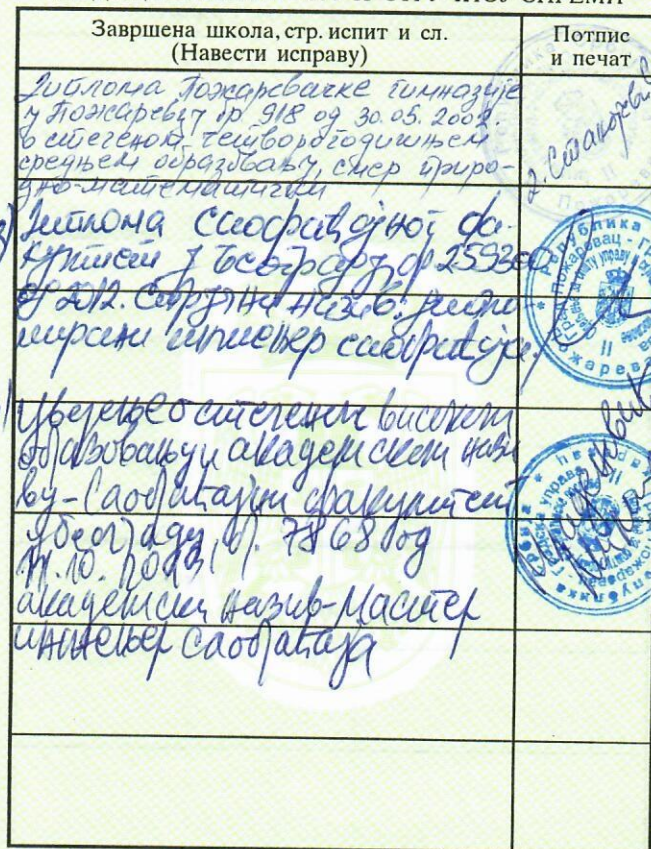 Завршена школа, стр. испит и сл.
(Навести исправу)
Потпис
и печат
Диплома Пожаревачке гимназије
у Пожаревцу бр. 918 од 30.05.2002.
о стеченом четворогодишњем
средњем образовању, смер приро-
дно-математички
2. Диплома Саобраћајног фа-
култета у Београду, бр. 2593
од 2012. Стручни назив: дипло
мирани инжењер саобраћаја.
Уверење о стеченом високом
образовању и академском нази
ву - Саобраћајни факултет
у Београду, бр. 7868 од
10.
академски назив - Мастер
инжењер саобраћаја